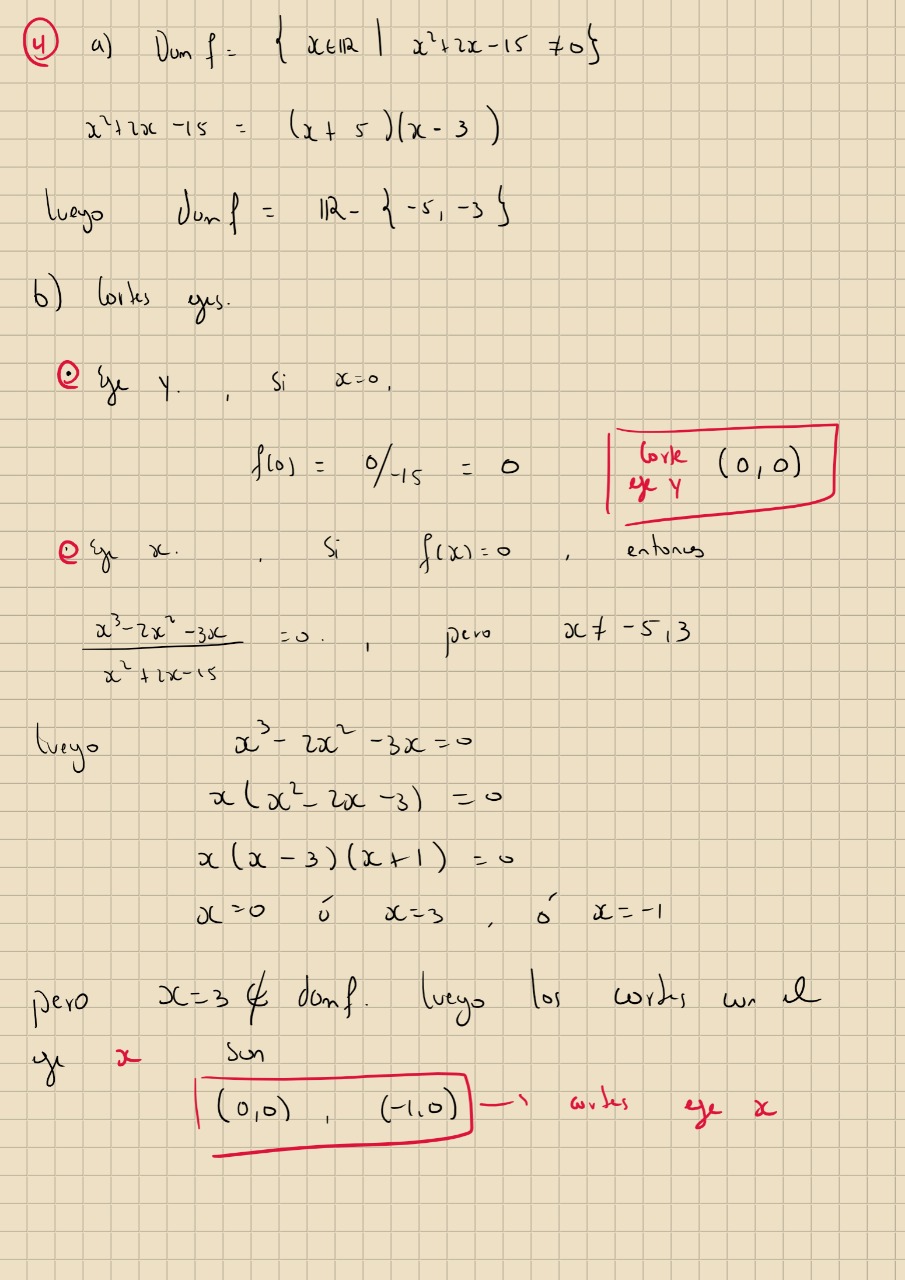 4 a) Dom f = { x∈ℝ | x²+2x-15 ≠0}
x²+2x-15 = (x+5)(x-3)
luego Dom f = ℝ- {-5, -3}
b) Cortes ejes.
Eje y. , Si x=0,
f(0) = 0/-15 = 0
Corte eje y (0,0)
Eje x. , Si f(x)=0 , entonces
(x³-2x²-3x)/(x²+2x-15) =0. , pero x≠ -5,3
luego x³- 2x² -3x=0
x(x²-2x-3) =0
x(x-3)(x+1) =0
x=0 ó x=3 , ó x=-1
pero x=3 ∉ domf. luego los cortes con el
eje x son
(0,0) , (-1,0) → cortes eje x